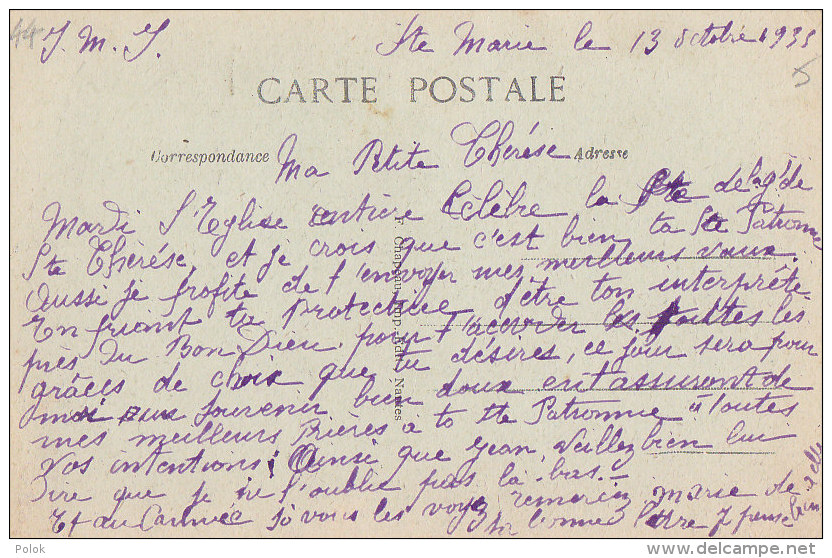 44
J. M. J.
Ste Marie le 13 octobre 1935
5
CARTE POSTALE
Correspondance
Adresse
Ma Petite Thérése
Mardi l'Eglise entière Célèbre la fête de la gde
Ste Thérése, et je crois que c'est bien ta Ste Patronne
Aussi je profite de t'envoyer mes meilleurs vœux.
En priant ta protectrice d'être ton interprête
près du Bon Dieu pour t'accorder toutes les
grâces de choix que tu désires, ce jour sera pour
moi un souvenir bien doux en t'assurant de
mes meilleurs Prières à ta Ste Patronne à toutes
vos intentions. Ainsi que Jean, veillez bien lui
dire que je ne l'oublie pas là-bas.
Et au Carmel si vous les voyez remerciez Marie de
sa bonne lettre je pense bien à elle
F. Chapeau, Imp. Edit. Nantes
Polok
delcampe.net